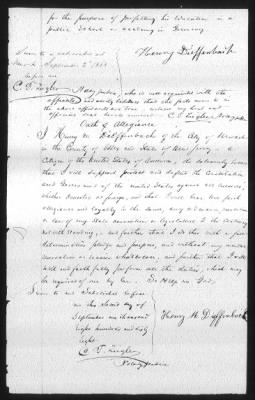 for the purpose of perfecting his education in a
public School or academy in Germany
Henry Dieffenbach
Sworn to & subscribed at
Newark September 2d 1868
before me
C. T. Zeigler Notary Public, who is well acquainted with the
affiants and verily believes that the facts sworn to in
the above affidavits are true
C. T. Zeigler, Notary Public
Oath of Allegiance
I Henry M. Dieffenbach of the City of Newark
in the County of Essex and State of New Jersey a
Citizen of the United States of America, do solemnly swear
that I will support protect and defend the Constitution
and Government of the United States against all enemies,
whether domestic or foreign, and that I will bear true faith
allegiance and loyalty to the same, any ordinance resolution
or law of any State convention or legislature to the contrary
notwithstanding, and further that I do this with a full
determination pledge and purpose, and without any mental
reservation or evasion whatsoever, and further that I will
well and faithfully perform all the duties, which may
be required of me by law. So Help me God,
Sworn to and Subscribed before
me this Second day of
September one thousand
eight hundred and sixty
eight
Henry M. Dieffenbach
C. T. Zeigler
Notary Public